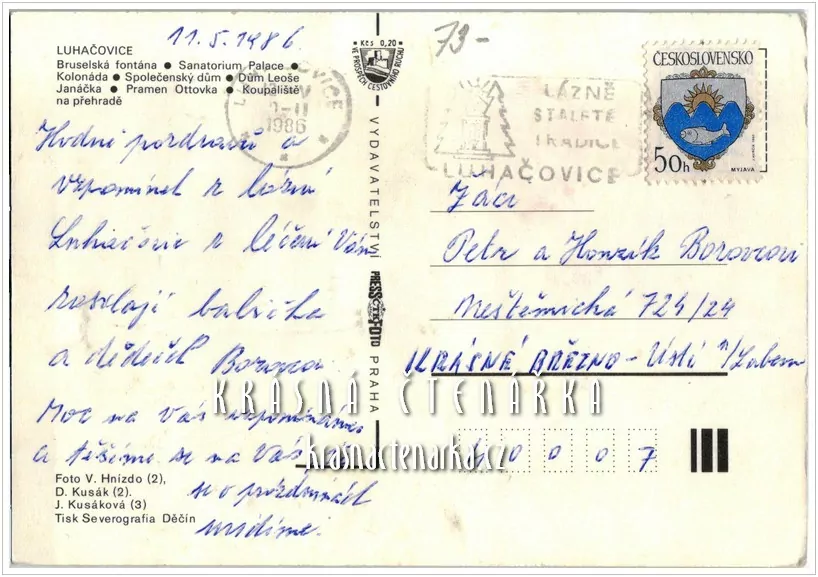 11.5.1986
LUHAČOVICE
Bruselská fontána ● Sanatorium Palace ●
Kolonáda ● Společenský dům ● Dům Leoše
Janáčka ● Pramen Ottovka ● Koupaliště
na přehradě
Hodně pozdravů a
vzpomínek z lázní
Luhačovic z léčení Vám
rosílají babička
a dědeček Borovcovi
Moc na Vás vzpomínáme
a těšíme se na Vás
se o prázdninách
uvidíme.
Foto V. Hnízdo (2),
D. Kusák (2).
J. Kusáková (3)
Tisk Severografia Děčín
Kčs 0,20
VE PROSPĚCH CESTOVNÍHO RUCHU
VYDAVATELSTVÍ
PRESSFOTO
ČTK
PRAHA
1986
73-
LÁZNĚ
STALETÉ
TRADICE
LUHAČOVICE
ČESKOSLOVENSKO
50h
MYJAVA
Žáci
Petr a Honzík Borovcovi
Neštěmická 724/24
KRÁSNÉ BŘEZNO - Ústí n/Labem
40007
KRÁSNÁ ČTENÁŘKA
krasnactenarka.cz